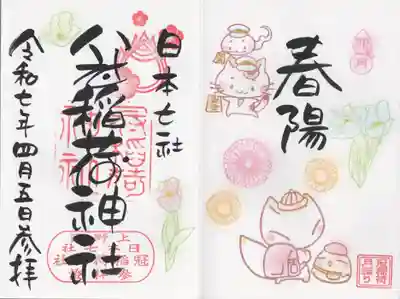 春陽
日本七社
冠稲荷神社
令和七年四月五日参拝